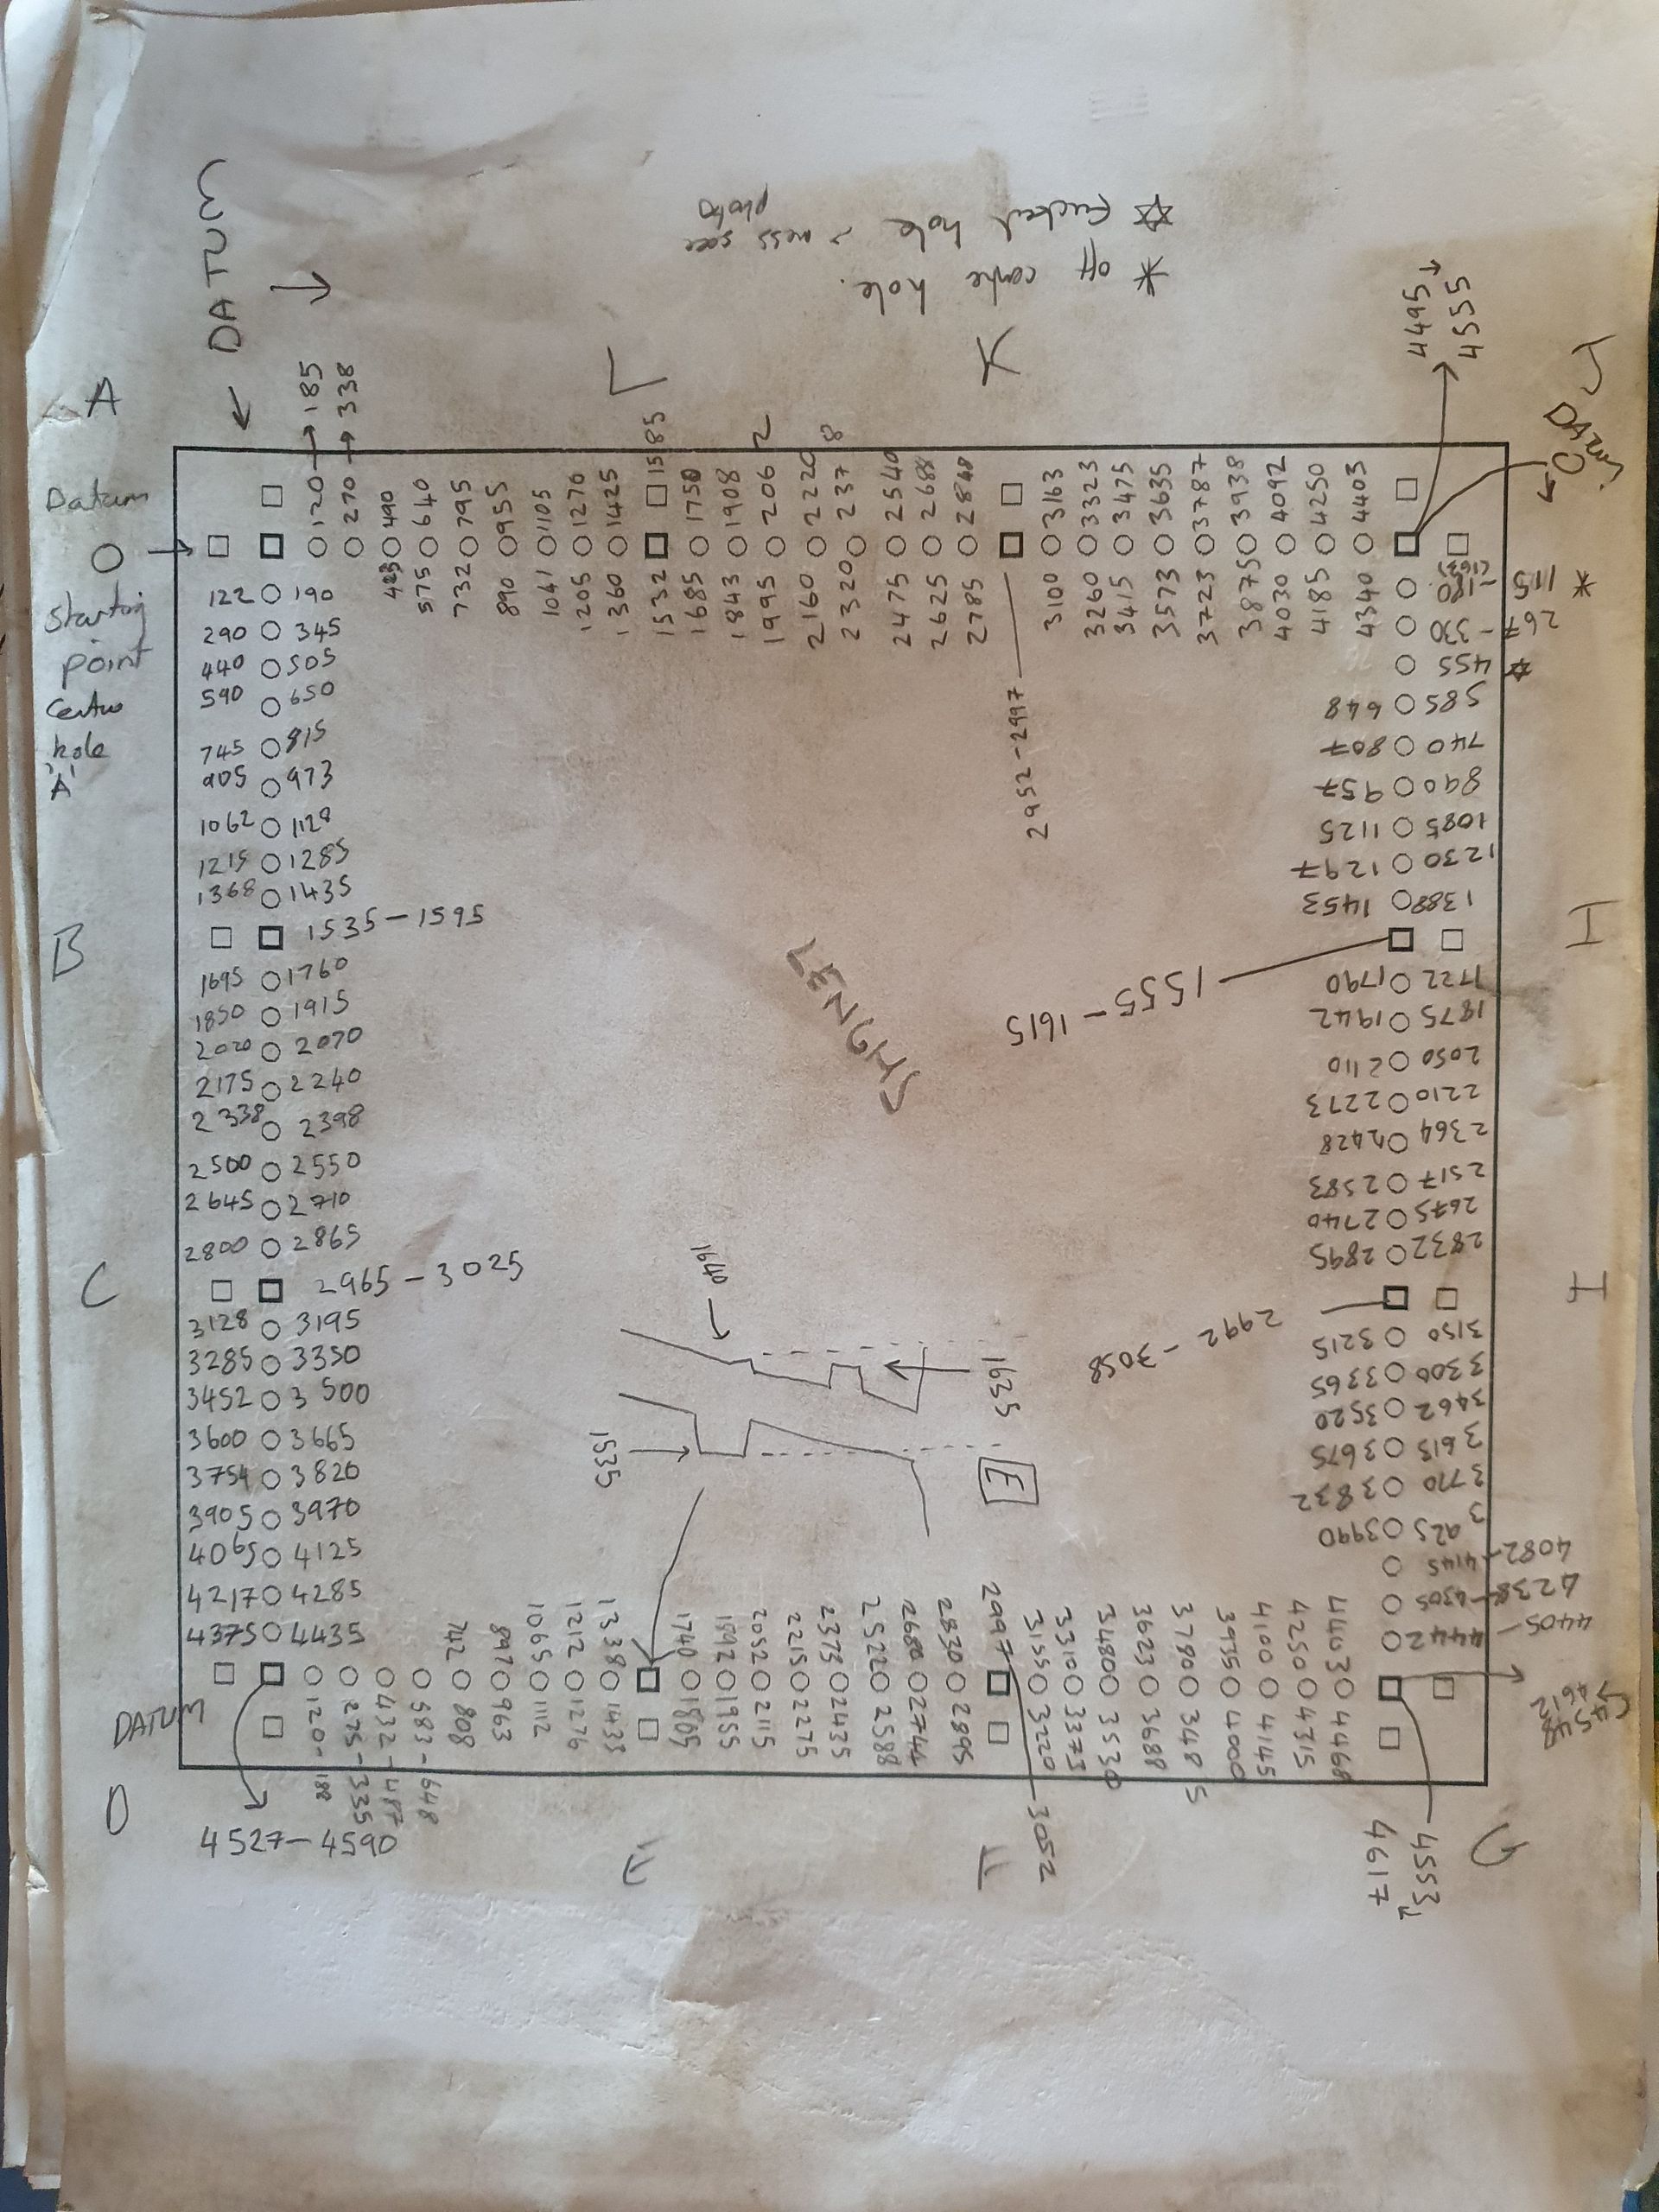 DATUM
A
Datum
Starting
point
Centre
hole
'A'
☆ Fucked hole > mess see
photo
* off centre hole.
L
K
J
DATUM
4495
4555
120 → 185
270 → 338
423 490
575 640
732 795
890 955
1041 1105
1205 1270
1360 1425
1532 1585
1685 1750
1843 1908
1995 2062
2160 2220
2320 2378
2475 2540
2625 2688
2785 2848
2952-2997
3100 3163
3260 3323
3415 3475
3573 3635
3723 3787
3875 3938
4030 4092
4185 4250
4340 4403
122 190
290 345
440 505
590 650
745 815
905 973
1062 1128
1215 1285
1368 1435
B
1535-1595
1695 1760
1850 1915
2020 2070
2175 2240
2338 2398
2500 2550
2645 2710
2800 2865
C
2965-3025
3128 3195
3285 3350
3452 3500
3600 3665
3754 3820
3905 3970
4065 4125
4217 4285
4375 4435
DATUM
D
4527-4590
115 - 180 *
(163)
267 - 330
455 ☆
585 648
740 807
890 957
1085 1125
1230 1297
1388 1453
I
1555-1615
1722 1790
1875 1942
2050 2110
2210 2273
2364 2428
2517 2583
2675 2740
2832 2895
H
2992-3058
3150 3215
3300 3365
3462 3520
3615 3675
3770 3832
3925 3990
4082-4145
4238-4305
4405-4442
4548
4612
G
4553
4617
1640
1635
1535
E
120-188
275-335
432-487
583-648
742 808
897 963
1065 1112
1212 1276
1338 1433
1740 1805
1892 1955
2052 2115
2215 2275
2373 2435
2522 2588
2680 2744
2830 2895
2997-3052
3155 3220
3310 3373
3480 3530
3623 3688
3790 3485
3935 4000
4100 4145
4250 4315
4403 4468
F